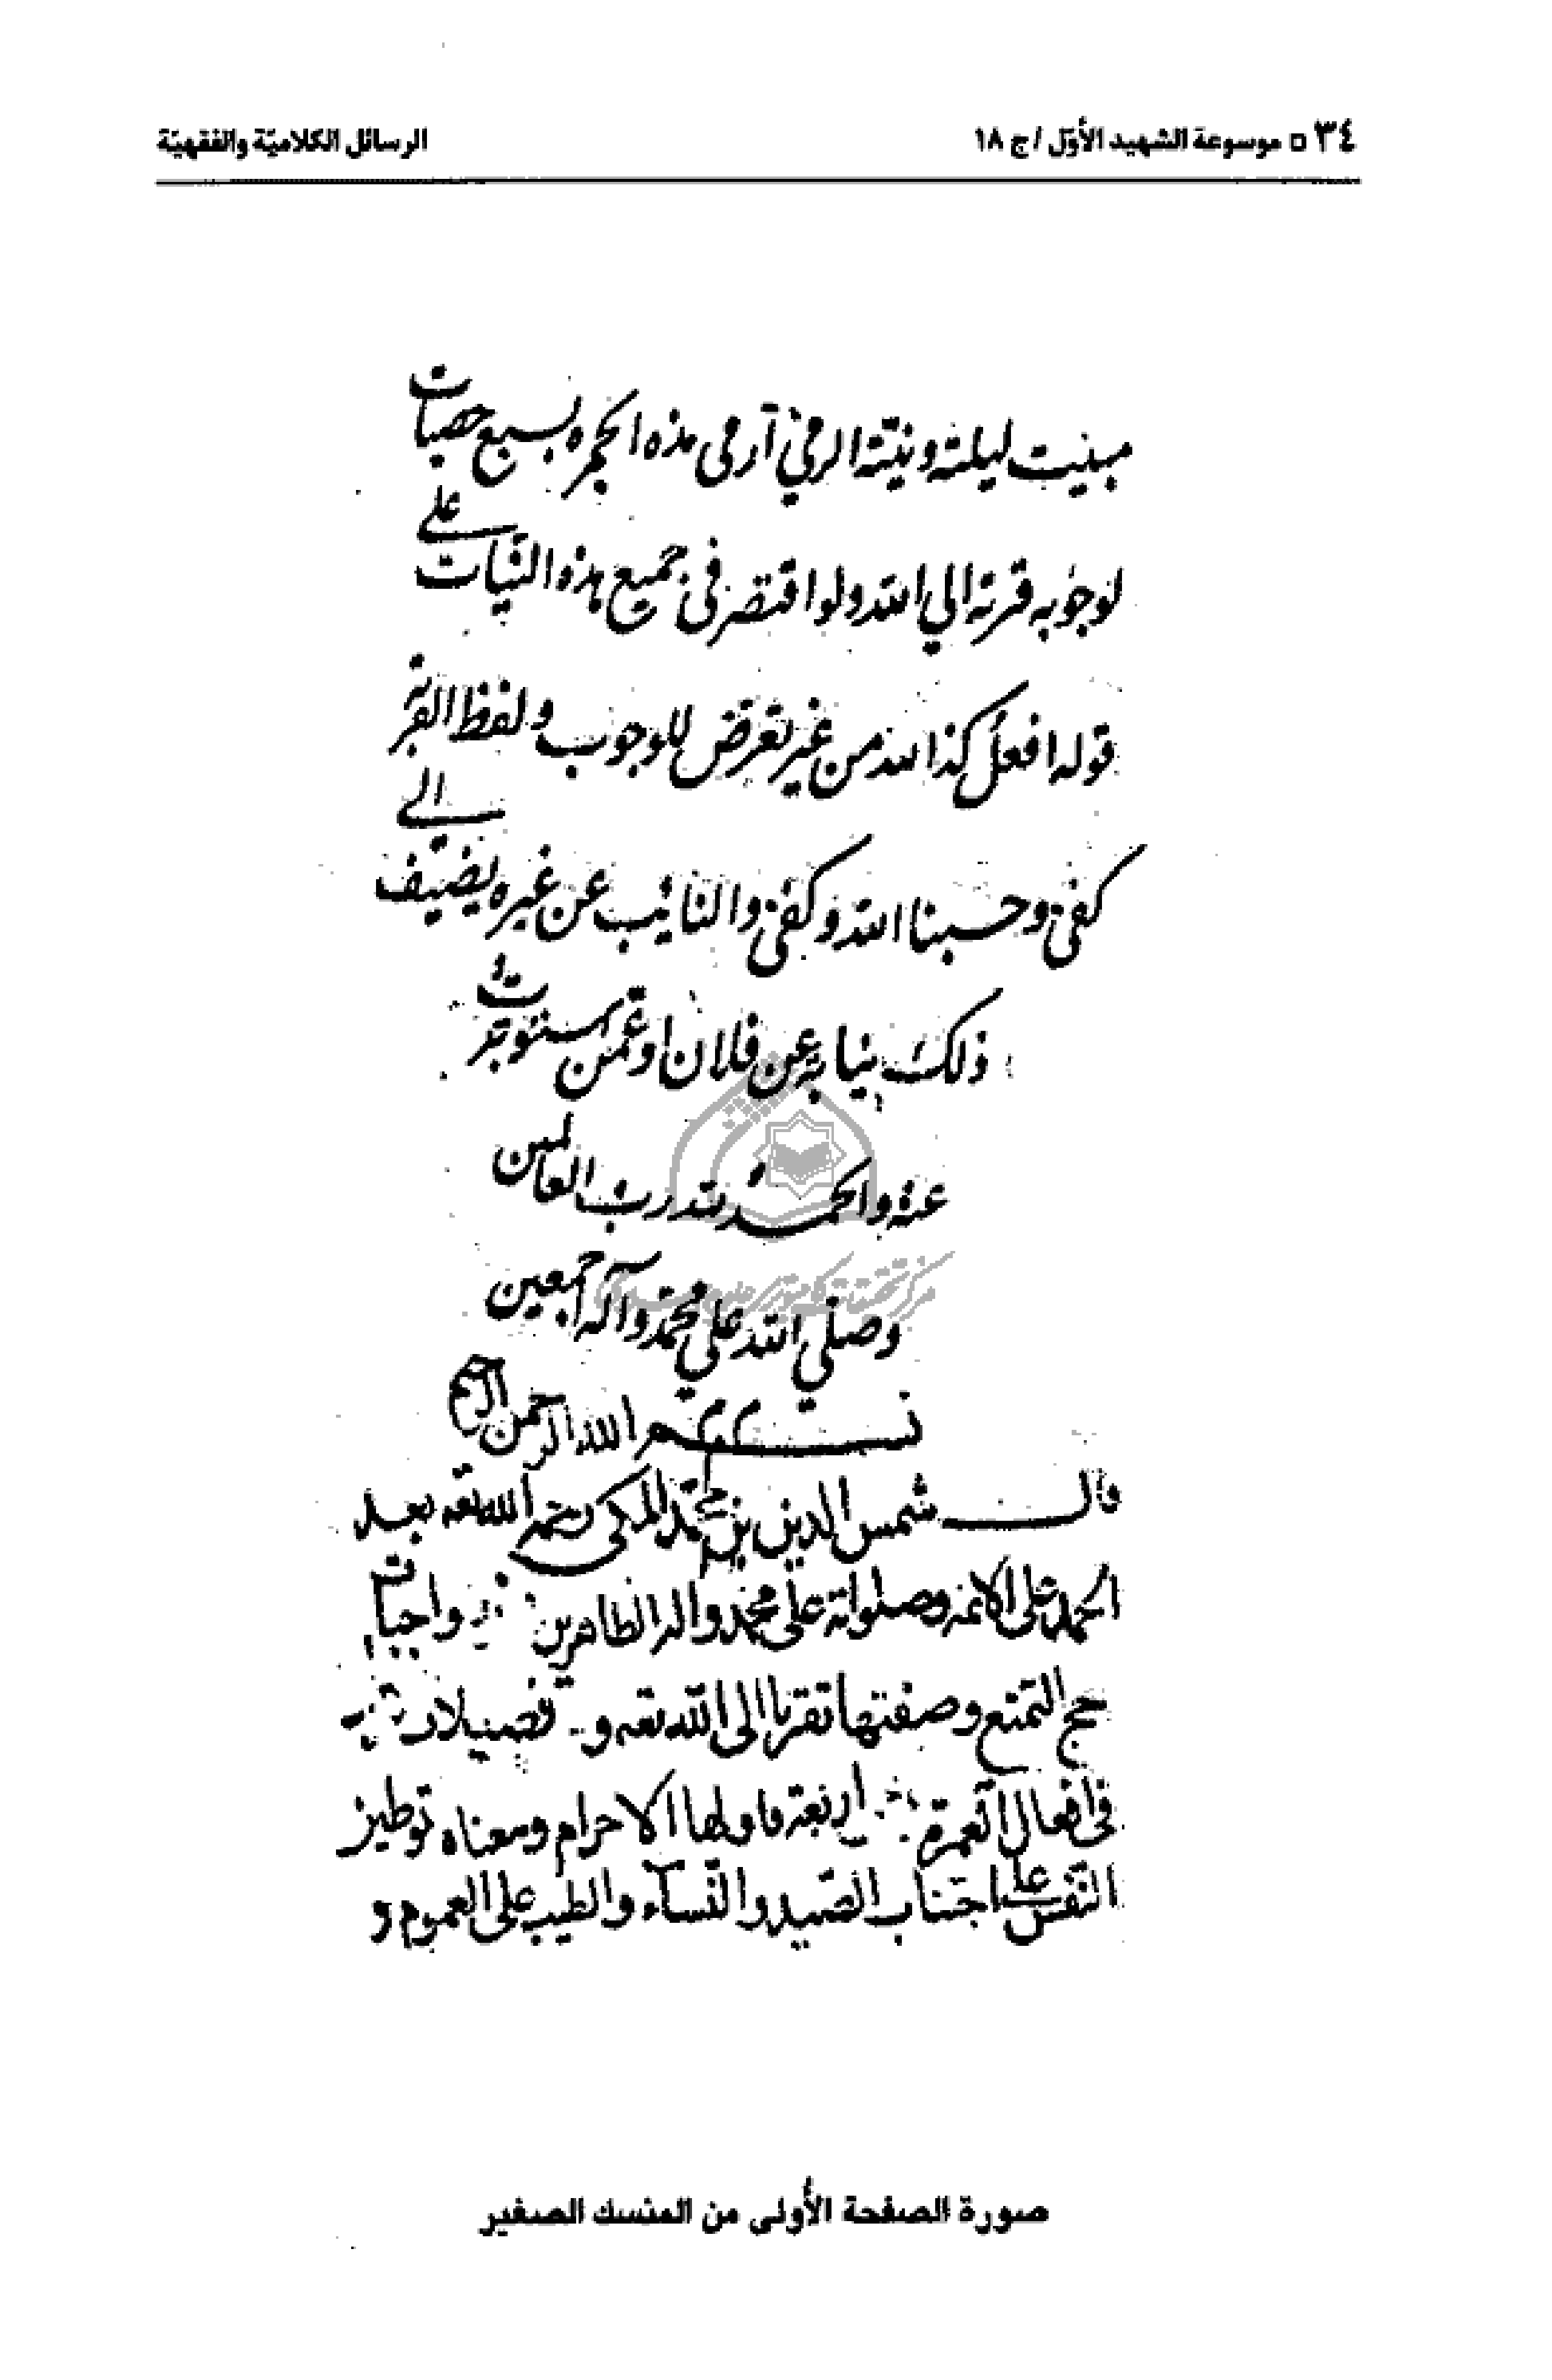 ٣٤ □ موسوعة الشهيد الأوّل / ج ١٨
الرسائل الكلاميّة والفقهيّة
مبيت ليلته ونيّة الرمي أرمي هذه الجمره بسبع حصيات
لوجوبه قربة الي الله ولو اقتصر في جميع هذه النيّات علي
قوله افعل كذا لله من غير تعرّض للوجوب ولفظ القربة
كفى وحسبنا الله وكفى والنائب عن غيره يضيف الي
ذلك نيابة عن فلان او عمّن استوجرت
عنه والحمد لله رب العالمين
وصلي الله علي محمد وآله اجمعين
بسم الله الرحمن الرحيم
قال شمس الدين بن محمّد المكي رحمه الله تعه بعد
الحمد على الائه وصلواته على محمد واله الطاهرين واجبات
حج التمتع وصفتها تقربا الى الله تعه و
في افعال العمرة اربعة فاولها الاحرام ومعناه توطين
النفس على اجتناب الصّيد والنّساء والطيب على العموم و
صورة الصفحة الأُولى من المنسك الصغير